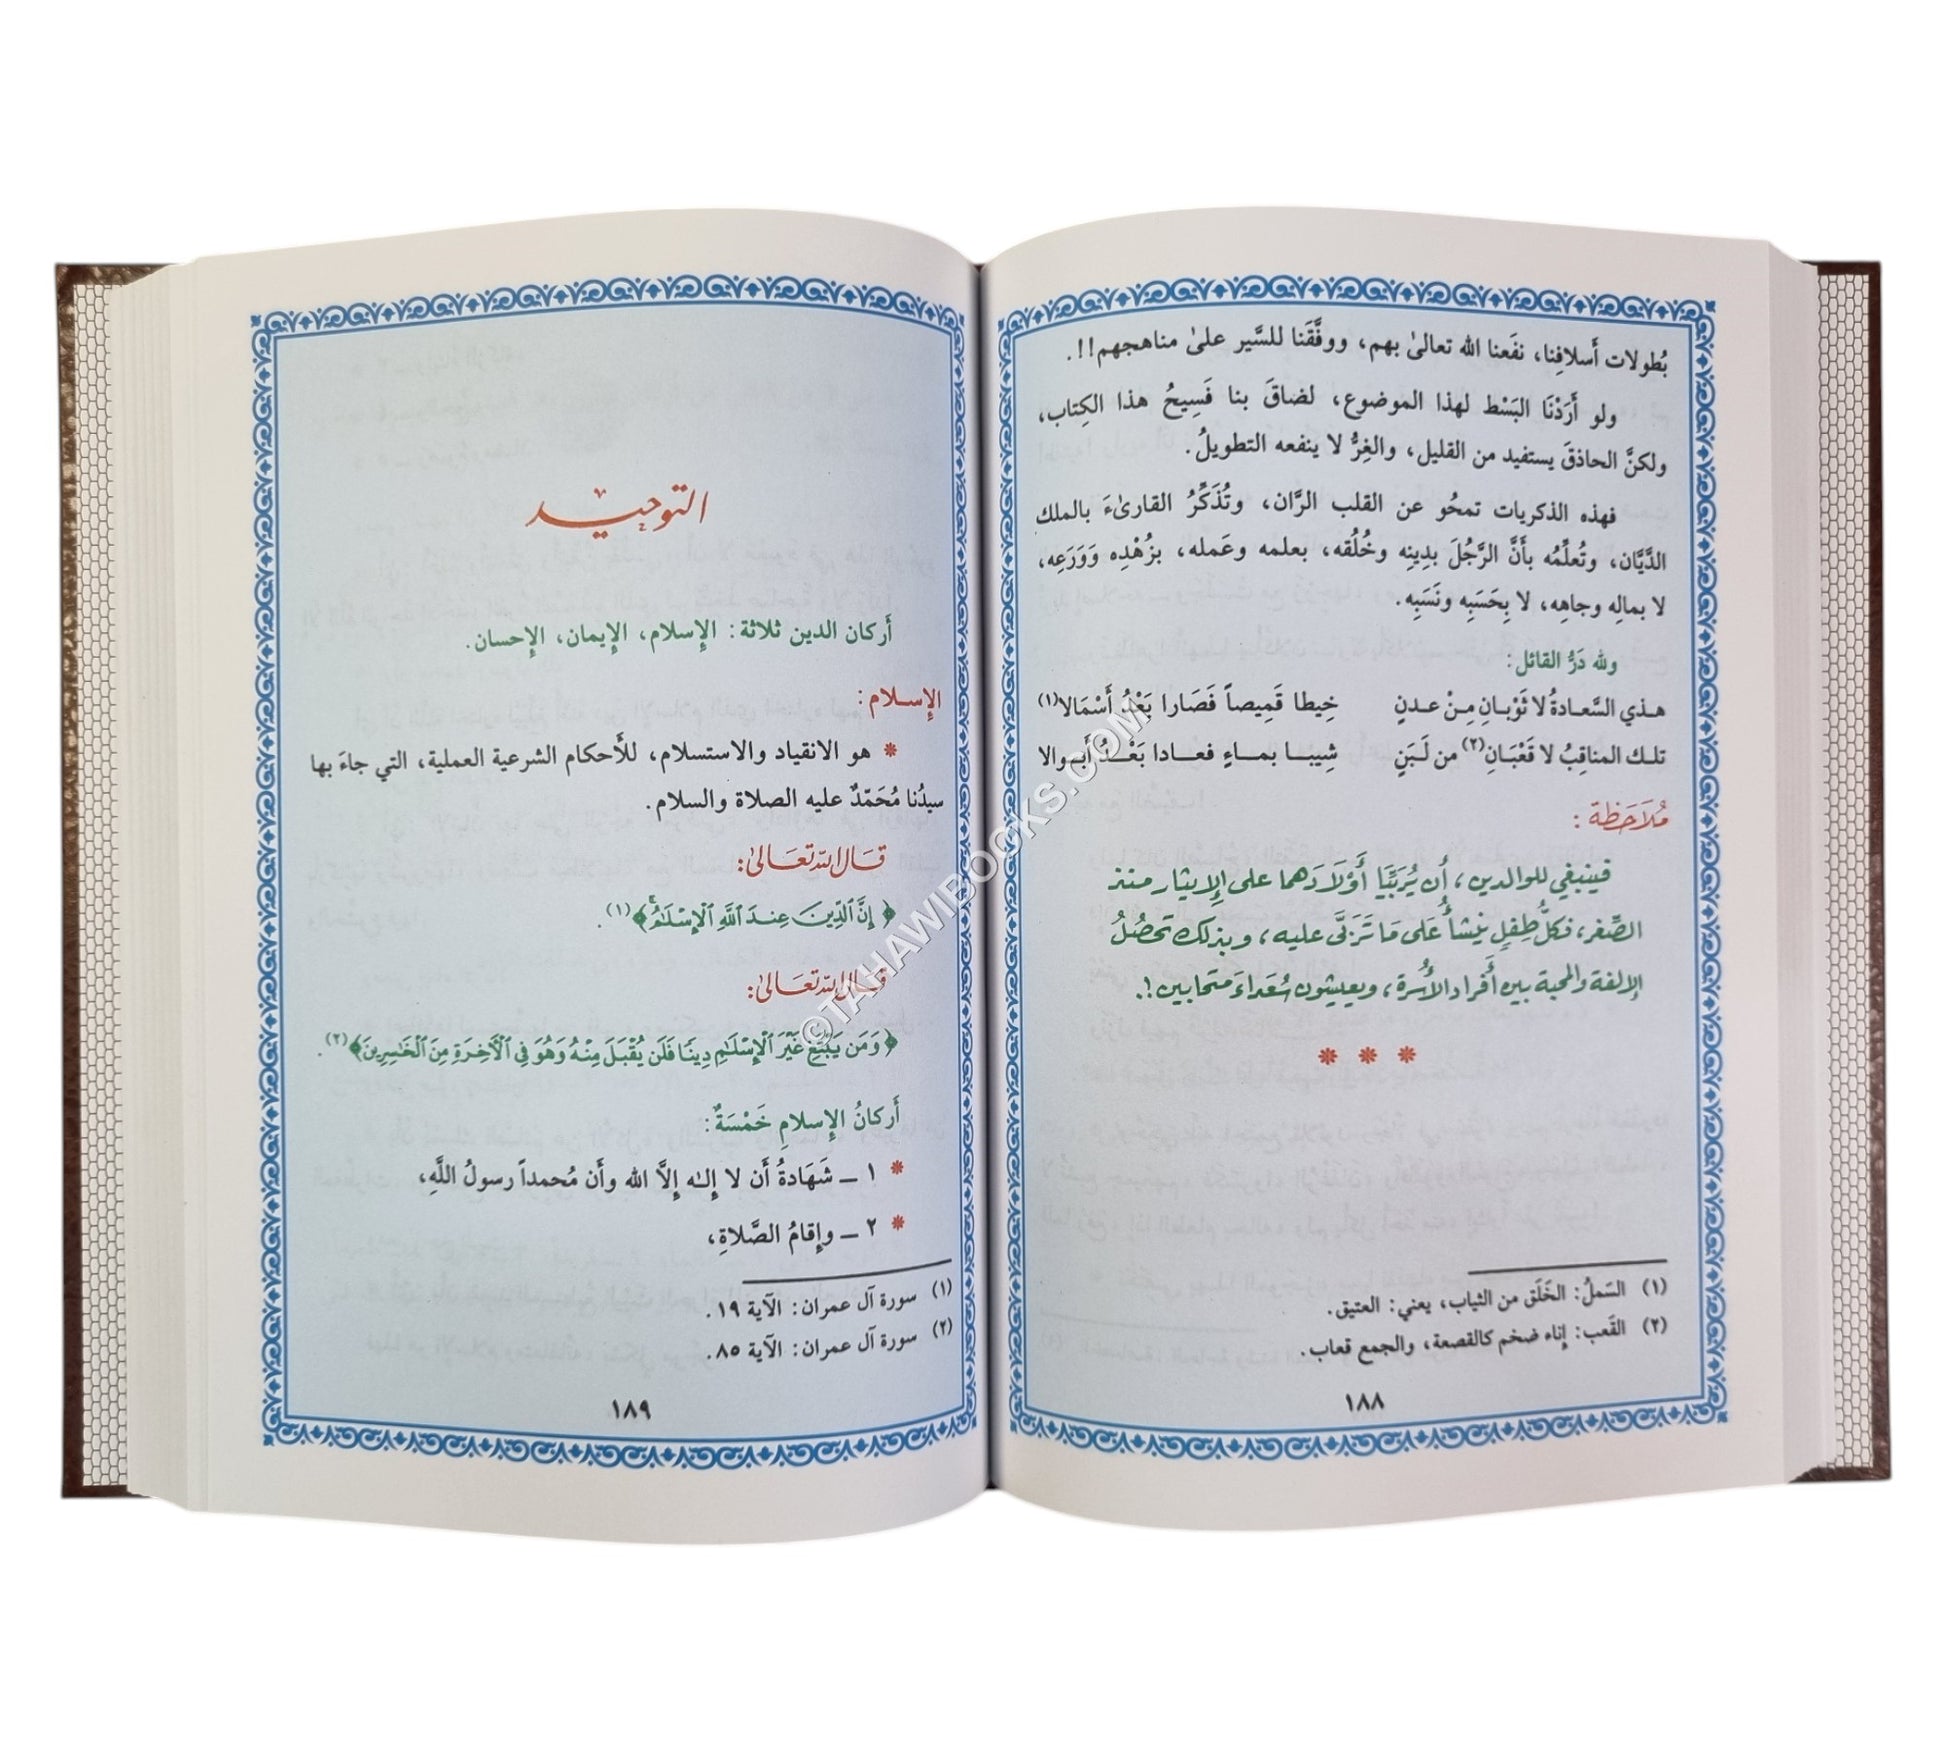 بُطولات أَسلافِنا، نفَعنا الله تعالىٰ بهم، ووفَّقَنا للسَّير علىٰ مناهجهم!!.
ولو أَرَدْنَا البَسْط لهذا الموضوع، لضاقَ بنا فَسِيحُ هذا الكِتاب،
ولكنَّ الحاذقَ يستفيد من القليل، والغِرُّ لا ينفعه التطويلُ.
فهذه الذكريات تمحُو عن القلب الرَّان، وتُذَكِّرُ القارىٔءَ بالملك
الدَّيَّان، وتُعلِّمُه بأَنَّ الرَّجُلَ بدِينِه وخُلُقه، بعلمه وعَمله، بزُهْدِه وَوَرَعِه،
لا بمالِه وجاهِه، لا بِحَسَبِه ونَسَبِه.
ولله دَرُّ القائل:
هـذي السَّعـادةُ لا ثَوْبـانِ مِـنْ عـدنٍ خِيطا قَمِيصاً فَصَارا بَعْدُ أَسْمَالا(١)
تلـك المناقِبُ لا قَعْبَـانِ(٢) من لَبَنٍ شِيبـا بمـاءٍ فعـادا بَعْـدُ أَبـوالا
مُلَاحَظة:
فينبغي للوالدين، أن يُرَبِّيَا أَوْلَادَهما على الإيثار منذ
الصِّغر، فكلُّ طِفلٍ ينشأُ عَلى مَا تَرَبَّى عليه، وبذلك تحصُلُ
الإلفة والمحبة بين أَفراد الأُسرة، ويعيشون سُعَداءَ متحابين!.
* * *
(١) السَملُ: الخَلَق من الثياب، يعني: العتيق.
(٢) القَعب: إناء ضخم كالقصعة، والجمع قعاب.
١٨٨
التوحيد
أَركان الدين ثلاثة: الإسلام، الإيمان، الإحسان.
الإسلام:
* هو الانقياد والاستسلام، للأحكام الشرعية العملية، التي جاءَ بها
سيدُنا مُحَمّدٌ عليه الصلاة والسلام.
قَال اللهُ تعَالىٰ:
﴿إِنَّ الدِّينَ عِندَ اللَّهِ الْإِسْلَامُ﴾(١).
قَال اللهُ تعَالىٰ:
﴿وَمَن يَبْتَغِ غَيْرَ الْإِسْلَامِ دِينًا فَلَن يُقْبَلَ مِنْهُ وَهُوَ فِي الْآخِرَةِ مِنَ الْخَاسِرِينَ﴾(٢).
أَركانُ الإِسلامِ خَمْسَةٌ:
* ١ ـ شَهَادةُ أَن لا إِلٰه إِلَّا الله وأَن مُحمداً رسولُ اللَّهِ،
* ٢ ـ وإِقامُ الصَّلاةِ،
(١) سورة آل عمران: الآية ١٩.
(٢) سورة آل عمران: الآية ٨٥.
١٨٩
©TAHAWIBOOKS.COM